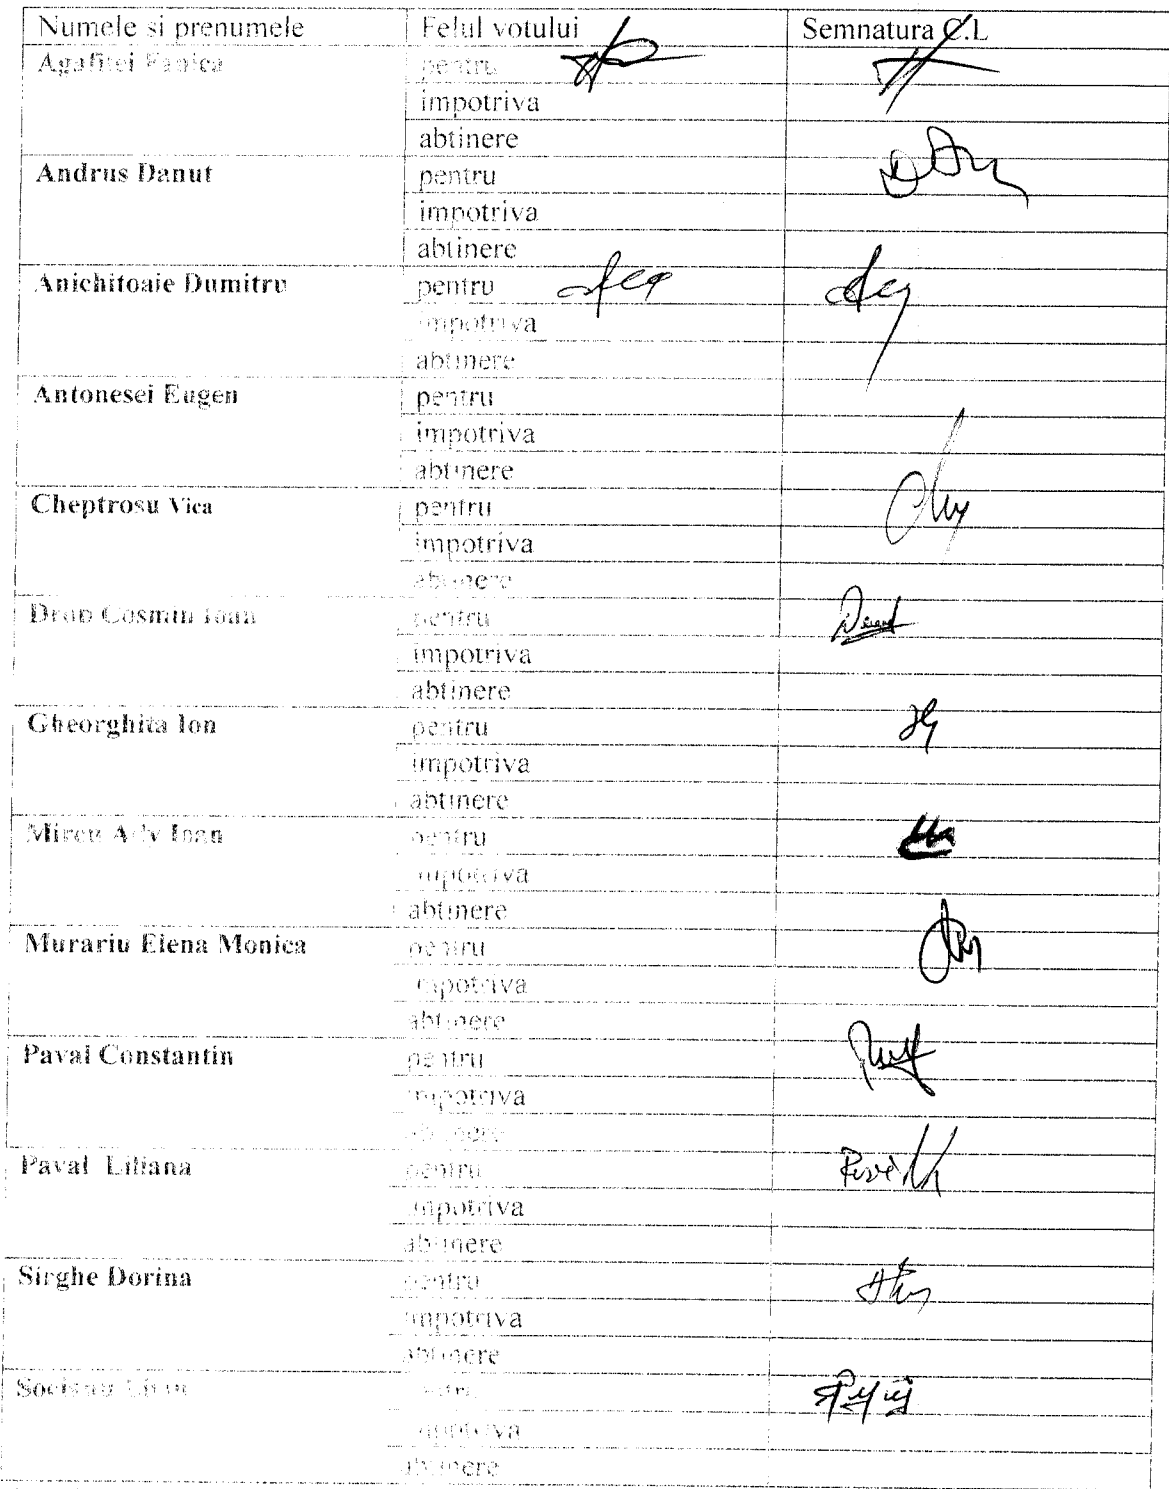 Numele si prenumele Felul votului Semnatura C.L
Agafitei Fanica pentru
impotriva
abtinere
Andrus Danut pentru
impotriva
abtinere
Anichitoaie Dumitru pentru
impotriva
abtinere
Antonesei Eugen pentru
impotriva
abtinere
Cheptrosu Vica pentru
impotriva
abtinere
Cosmin Ioan pentru
impotriva
abtinere
Gheorghita Ion pentru
impotriva
abtinere
Mircu Ady Ioan pentru
impotriva
abtinere
Murariu Elena Monica pentru
impotriva
abtinere
Paval Constantin pentru
impotriva
abtinere
Paval Liliana pentru
impotriva
abtinere
Sirghe Dorina pentru
impotriva
abtinere
pentru
impotriva
abtinere